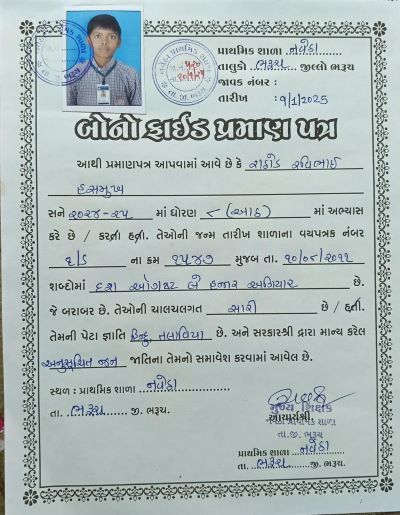 પ્રાથમિક શાળા નવેઠા
તાલુકો ભરૂચ જીલ્લો ભરૂચ
જાવક નંબર :
તારીખ : ૧/૧/2025
બોનો ફાઈડ પ્રમાણ પત્ર
આથી પ્રમાણપત્ર આપવામાં આવે છે કે રાઠોડ રવિભાઈ
હસમુખ
સને ૨૦૨૪-૨૫ માં ધોરણ ૮ (આઠ) માં અભ્યાસ
કરે છે / કરતા હતી. તેઓની જન્મ તારીખ શાળાના વયપત્રક નંબર
૬/ડ ના ક્રમ ૧૫૪૭ મુજબ તા. ૧૦/૦૮/૨૦૧૧
શબ્દોમાં દશ ઓગષ્ટ બે હજાર અગિયાર છે.
જે બરાબર છે. તેઓની ચાલચલગત સારી છે / હતી.
તેમની પેટા જ્ઞાતિ હિન્દુ તલાવિયા છે. અને સરકારશ્રી દ્વારા માન્ય કરેલ
અનુસૂચિત જન જાતિના તેમનો સમાવેશ કરવામાં આવેલ છે.
સ્થળ : પ્રાથમિક શાળા નવેઠા
તા. ભરૂચ જી. ભરૂચ
મુખ્ય શિક્ષક
આચાર્યશ્રી,
તા.જી. ભરૂચ
પ્રાથમિક શાળા નવેઠા
તા. ભરૂચ જી. ભરૂચ.